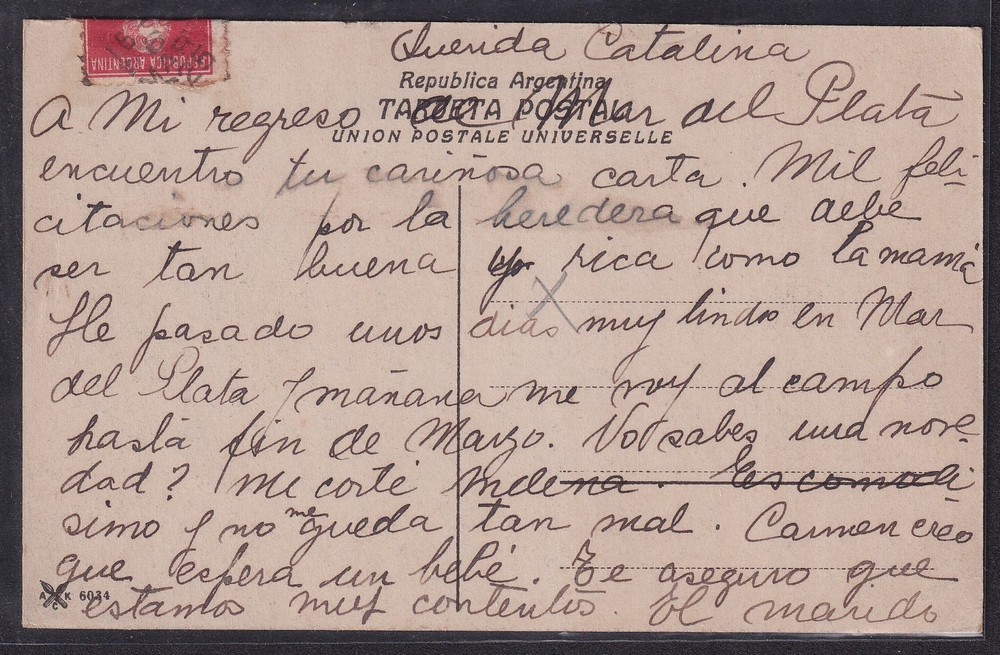 REPUBLICA ARGENTINA
Querida Catalina
Republica Argentina
TARJETA POSTAL
UNION POSTALE UNIVERSELLE
A Mi regreso de Mar del Plata
encuentro tu cariñosa carta. Mil feli-
citaciones por la heredera que debe
ser tan buena y rica como la mamá
He pasado unos dias muy lindos en Mar
del Plata y mañana me voy al campo
hasta fin de Marzo. No sabes una nove-
dad? Me corté melena. Es comodi
simo y no me queda tan mal. Carmen creo
que espera un bebé. Te aseguro que
estamos muy contentos. El marido
A K C 6034